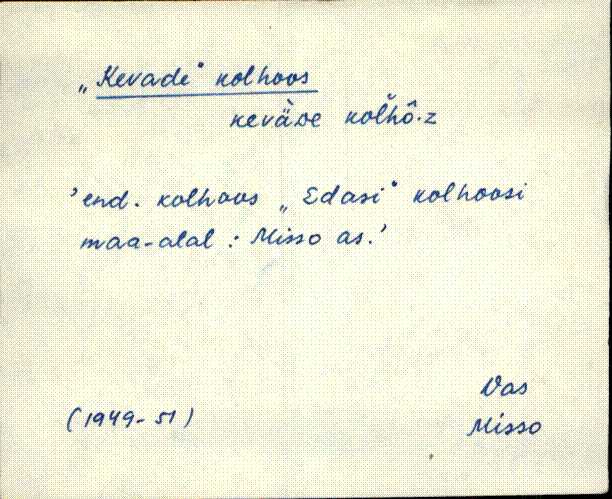 „Kevade" kolhoos
kevä̀de kol̆hô·z
'end. kolhoos „Edasi" kolhoosi
maa-alal : Misso as.'
Vas
(1949-51)
Misso